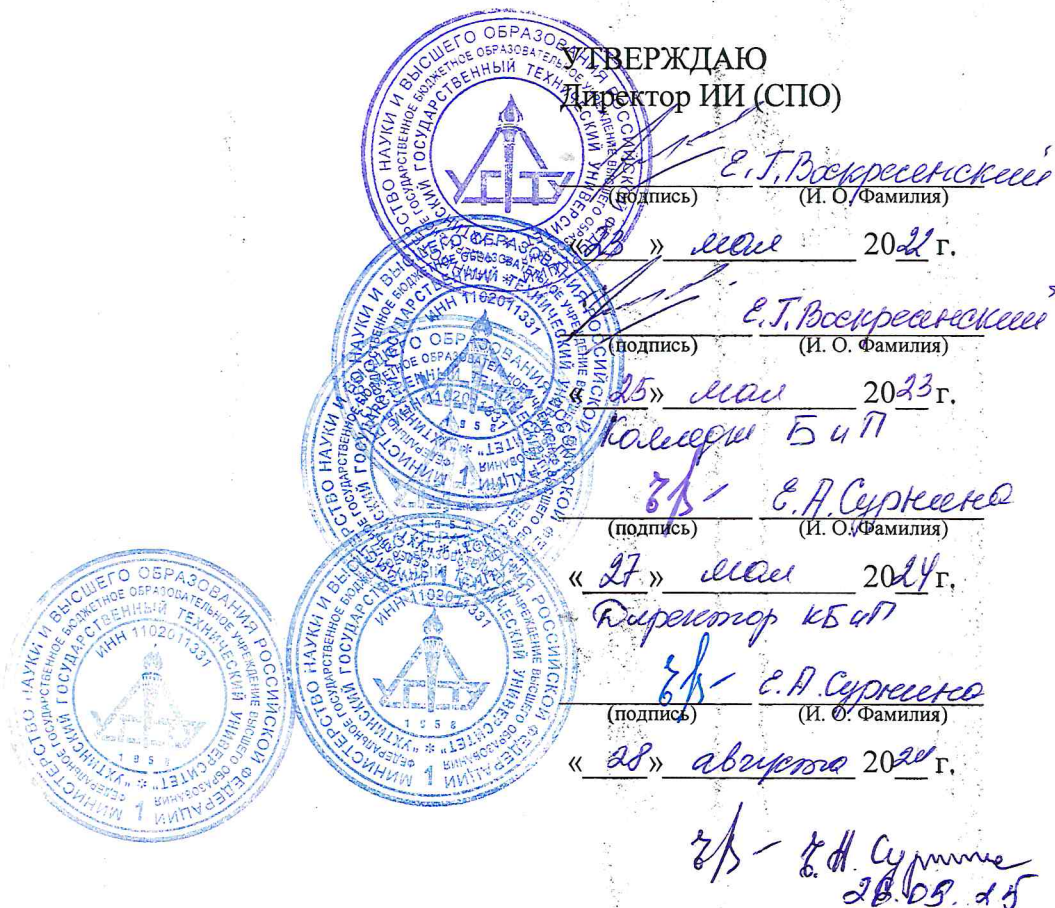 УТВЕРЖДАЮ
Директор ИИ (СПО)
Е.Г. Воскресенский
(подпись) (И. О. Фамилия)
«23» мая 2022 г.
Е.Г. Воскресенский
(подпись) (И. О. Фамилия)
«25» мая 2023 г.
БиП
Е.А. Суркина
(подпись) (И. О. Фамилия)
«27» мая 2024 г.
Директор КБиП
Е.А. Суркина
(подпись) (И. О. Фамилия)
«28» августа 20 г.
МИНИСТЕРСТВО НАУКИ И ВЫСШЕГО ОБРАЗОВАНИЯ РОССИЙСКОЙ ФЕДЕРАЦИИ
ФЕДЕРАЛЬНОЕ ГОСУДАРСТВЕННОЕ БЮДЖЕТНОЕ ОБРАЗОВАТЕЛЬНОЕ УЧРЕЖДЕНИЕ ВЫСШЕГО ОБРАЗОВАНИЯ
"УХТИНСКИЙ ГОСУДАРСТВЕННЫЙ ТЕХНИЧЕСКИЙ УНИВЕРСИТЕТ"
ИНН 1102011331
УГТУ
1958
1